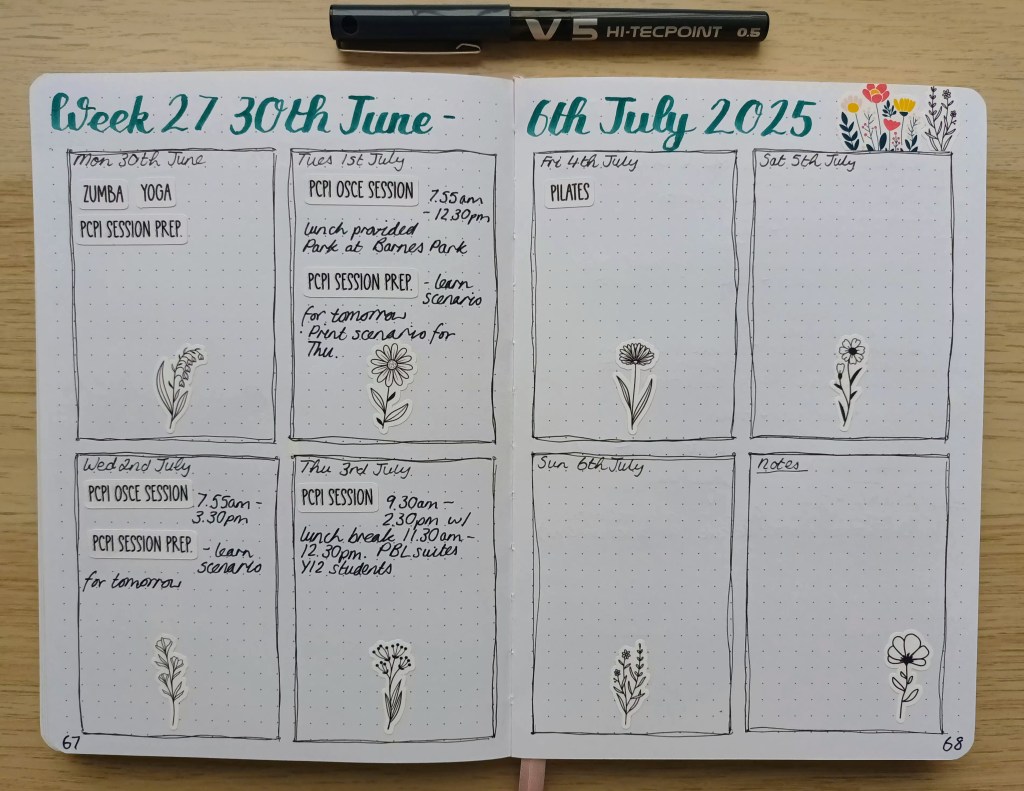 V5 HI-TECPOINT 0.5
Week 27 30th June - 6th July 2025
Mon 30th June
ZUMBA YOGA
PCPI SESSION PREP.
Tues 1st July
PCPI OSCE SESSION 7.55am
- 12.30pm
lunch provided
Park at Barnes Park
PCPI SESSION PREP. - learn
scenario
for tomorrow
· Print scenario for
Thu.
Wed 2nd July
PCPI OSCE SESSION 7.55am -
3.30pm
PCPI SESSION PREP. - learn
scenario
for tomorrow
Thu 3rd July
PCPI SESSION 9.30am -
2.30pm w/
lunch break 11.30am -
12.30pm. PBL suites
Y12 students
67
Fri 4th July
PILATES
Sat 5th July
Sun 6th July
Notes
68